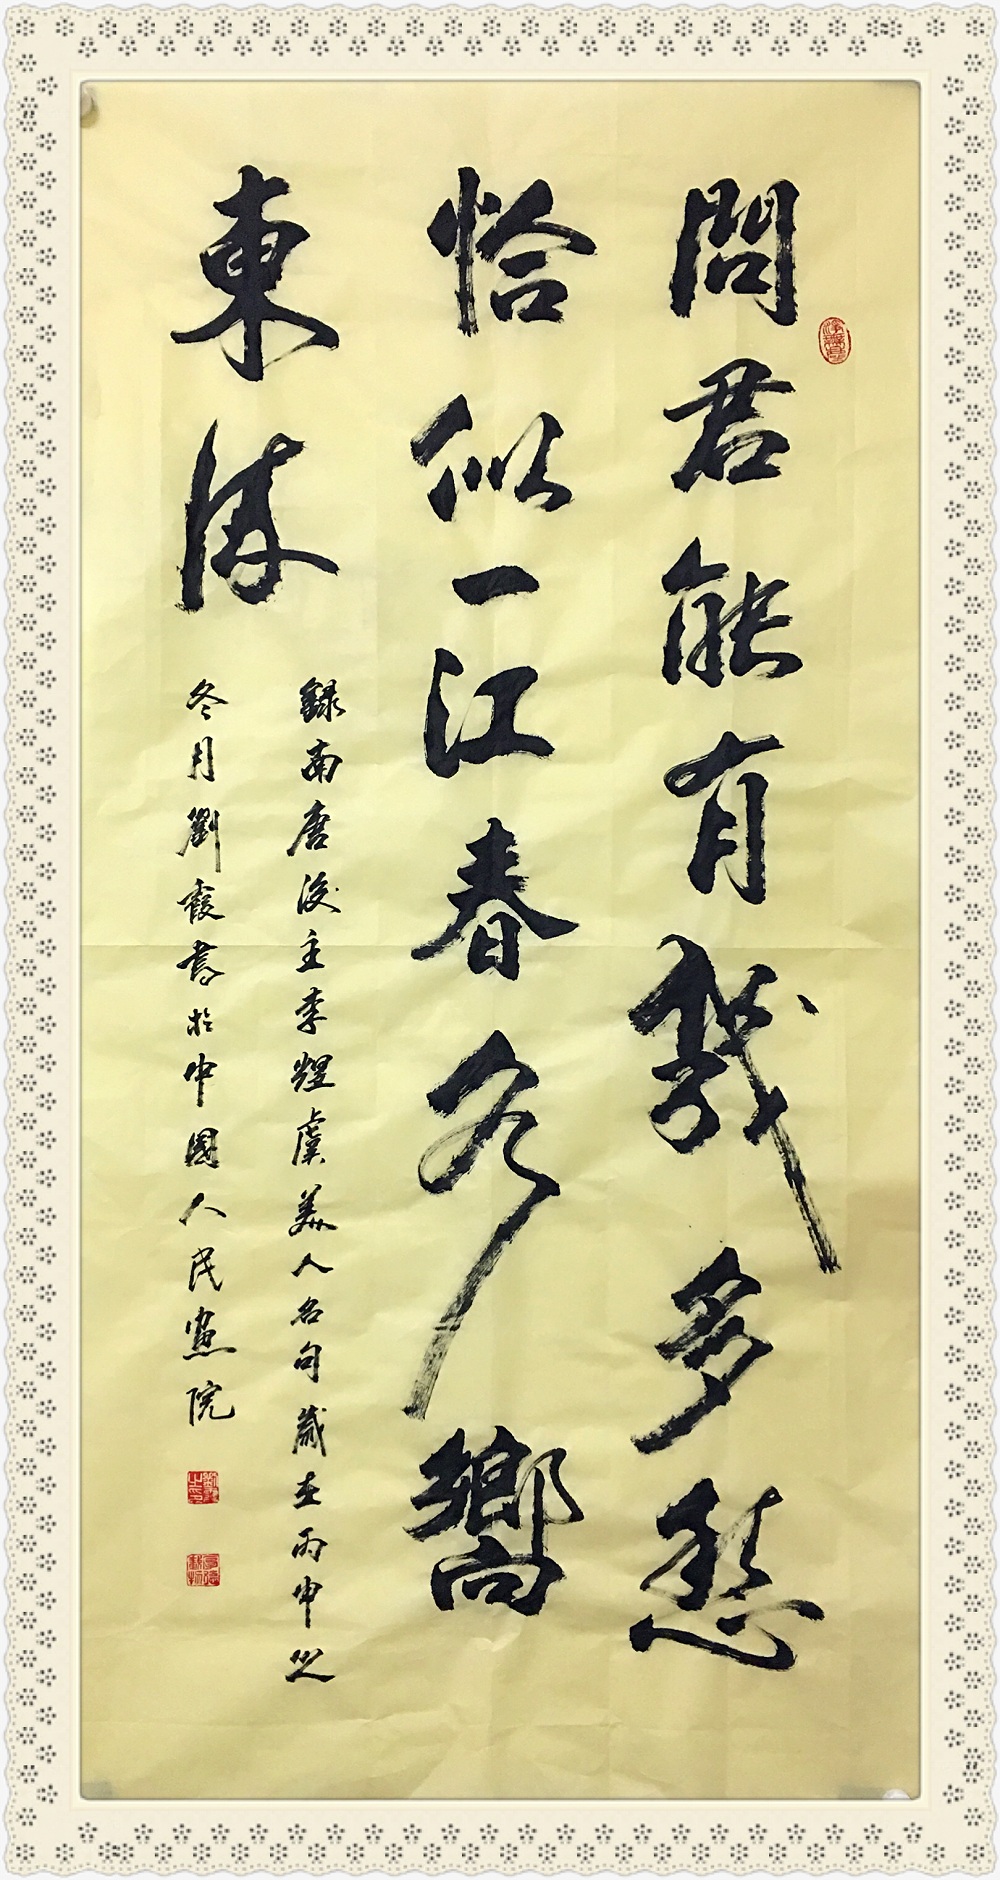 問君能有幾多愁
恰似一江春水嚮
東流
錄南唐後主李煜虞美人名句歲在丙申之
冬月劉霞書於中國人民畫院